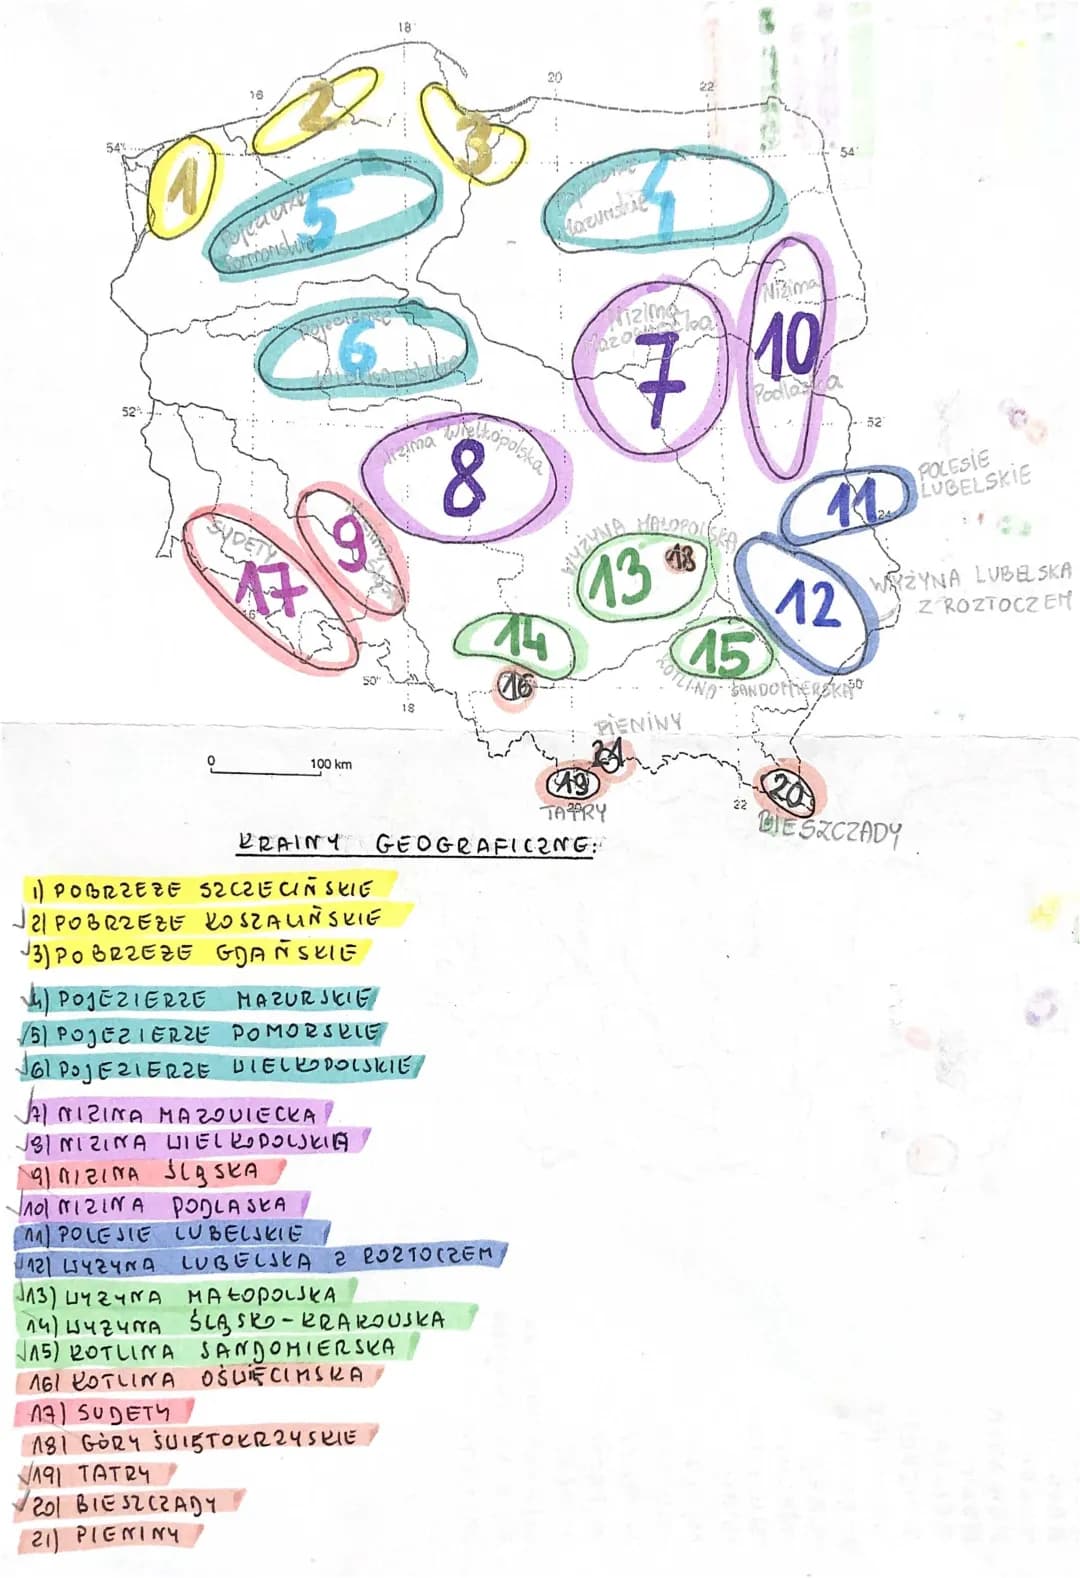 18
20
16
22
54°
54
1
2
3
Pojezierze
Pomorskie
5
Pojezierze
Mazurskie
4
Pojezierze
Wielkopolskie
6
Nizina
Mazowiecka
7
Nizina
10
Podlaska
52°
52
Nizina Wielkopolska
8
POLESIE
LUBELSKIE
11
24
SUDETY
17
9
WYŻYNA MAŁOPOLSKA
13
18
12
WYŻYNA LUBELSKA
Z ROZTOCZEM
14
15
KOTLINA SANDOMIERSKA
16
50°
50
18
PIENINY
21
0
100 km
19
20
TATRY
22
20
BIESZCZADY
KRAINY GEOGRAFICZNE:
1) POBRZEŻE SZCZECIŃSKIE
2) POBRZEŻE KOSZALIŃSKIE
3) POBRZEŻE GDAŃSKIE
4) POJEZIERZE MAZURSKIE
5) POJEZIERZE POMORSKIE
6) POJEZIERZE WIELKOPOLSKIE
7) NIZINA MAZOWIECKA
8) NIZINA WIELKOPOLSKA
9) NIZINA ŚLĄSKA
10) NIZINA PODLASKA
11) POLESIE LUBELSKIE
12) WYŻYNA LUBELSKA Z ROZTOCZEM
13) WYŻYNA MAŁOPOLSKA
14) WYŻYNA ŚLĄSKO-KRAKOWSKA
15) KOTLINA SANDOMIERSKA
16) KOTLINA OŚWIĘCIMSKA
17) SUDETY
18) GÓRY ŚWIĘTOKRZYSKIE
19) TATRY
20) BIESZCZADY
21) PIENINY